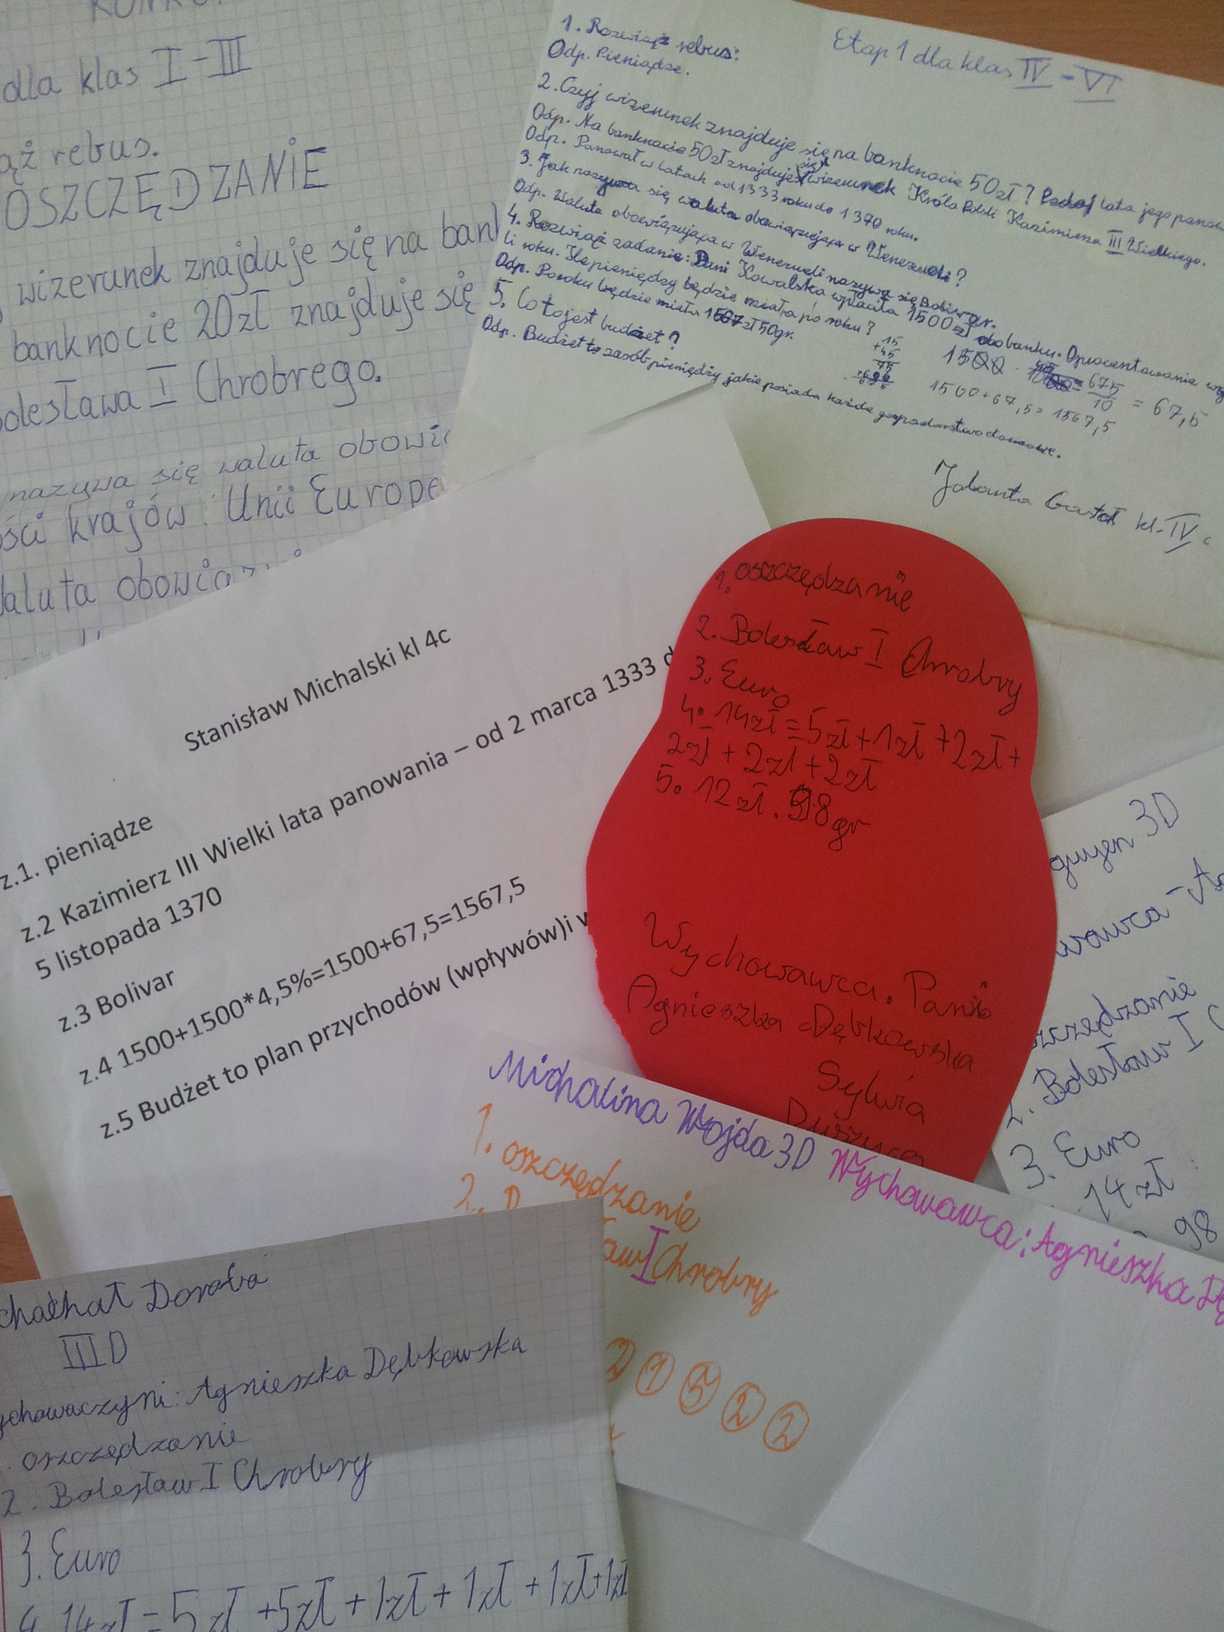 dla klas I-III
rebus.
OSZCZĘDZANIE
wizerunek znajduje się na
banknocie 20zł znajduje się
I Chrobrego.
nazywa się waluta
krajów Unii
waluta
Etap 1 dla klas IV-VI
1. Rozwiąż rebus:
Odp. Pieniądze.
2. Czyj wizerunek znajduje się na banknocie 50zł? Podaj lata jego
Odp. Na banknocie 50zł znajduje się wizerunek Króla Polski Kazimierza III Wielkiego.
Odp. Panował w latach od 1333 roku do 1370 roku.
3. Jak nazywa się waluta obowiązująca w Wenezueli?
Odp. Waluta obowiązująca w Wenezueli nazywa się Boliwar.
4. Rozwiąż zadanie: Pani Kowalska wpłaciła 1500zł do banku. Oprocentowanie
roku. Ile pieniędzy będzie miała po roku?
Odp. Po roku będzie miała 1567zł 50gr.
5. Co to jest budżet?
Odp. Budżet to zasób pieniędzy jakie posiada każde gospodarstwo domowe.
675
10
= 67,5
1500+67,5=1567,5
Jolanta kl. IV c
Stanisław Michalski kl 4c
z.1. pieniądze
z.2 Kazimierz III Wielki lata panowania – od 2 marca 1333 d
5 listopada 1370
z.3 Bolivar
z.4 1500+1500*4,5%=1500+67,5=1567,5
z.5 Budżet to plan przychodów (wpływów)i
1. oszczędzanie
2. Bolesław I Chrobry
3. Euro
4. 14zł=5zł+1zł+2zł+
2zł+2zł+2zł
5. 12zł. 98gr
Wychowawca. Pani
Agnieszka Dębkowska
Sylwia
3D
2. Bolesław I
3. Euro
14 zł
98
Michalina Wojda 3D Wychowawca: Agnieszka
1. oszczędzanie
2.
I Chrobry
2 1 5 2 2
Doroba
III D
Agnieszka Dębkowska
oszczędzanie
2. Bolesław I Chrobry
3. Euro
4. 14zł=5zł+5zł+1zł+1zł+1zł+1zł